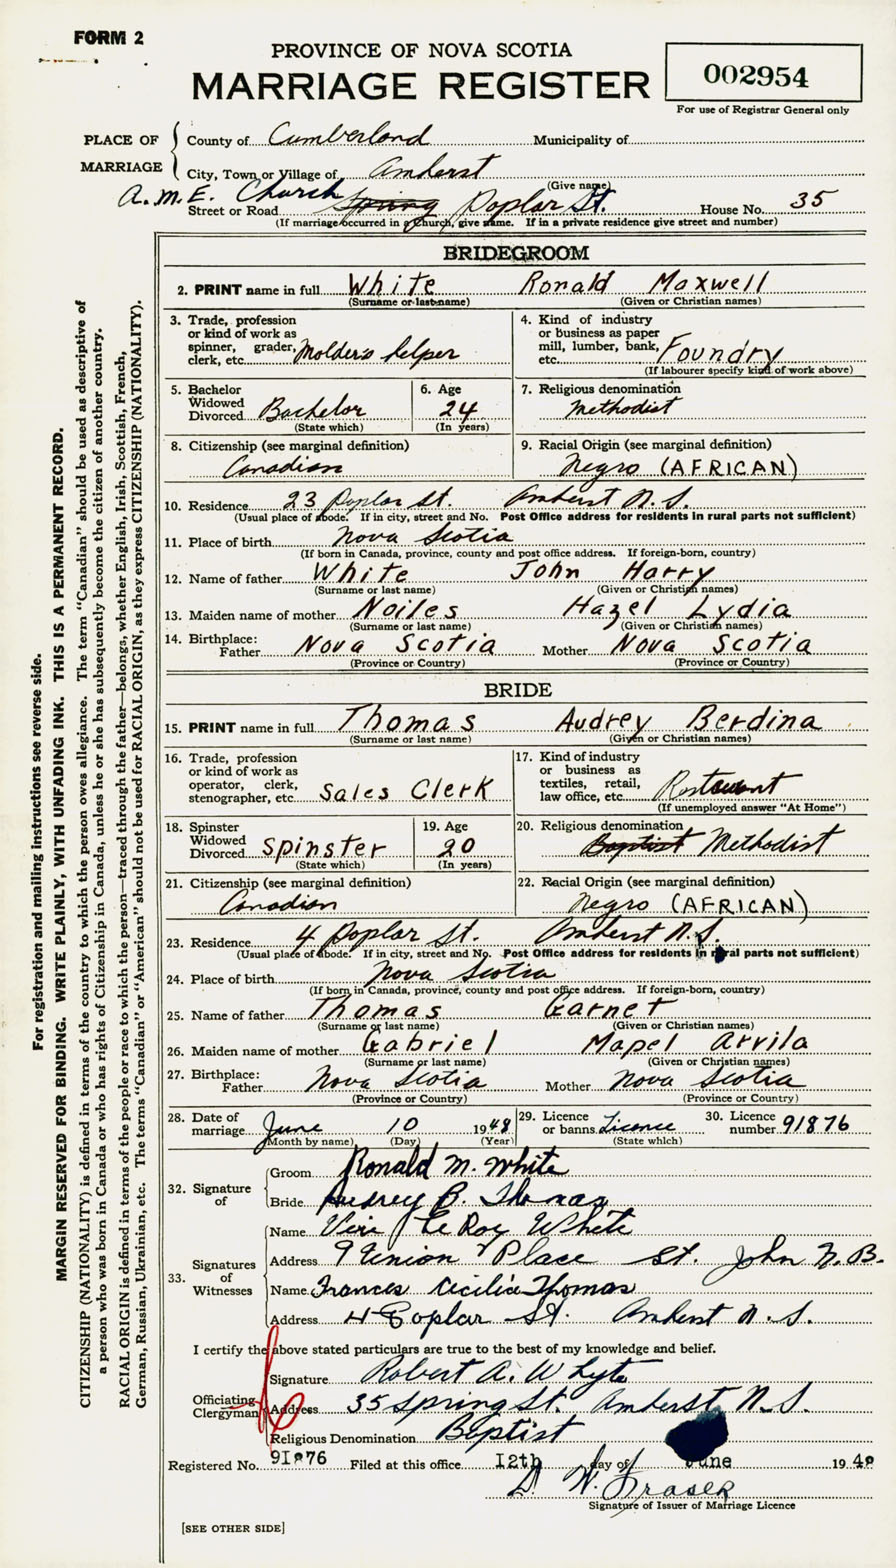 FORM 2
PROVINCE OF NOVA SCOTIA
MARRIAGE REGISTER
002954
For use of Registrar General only
PLACE OF MARRIAGE
County of Cumberland Municipality of
City, Town or Village of Amherst
(Give name)
A.M.E. Church
Street or Road Spring Poplar St. House No. 35
(If marriage occurred in a Church, give name. If in a private residence give street and number)
BRIDEGROOM
2. PRINT name in full White Ronald Maxwell
(Surname or last name) (Given or Christian names)
3. Trade, profession or kind of work as spinner, grader, clerk, etc. Molder's helper
4. Kind of industry or business as paper mill, lumber, bank, etc. Foundry
(If labourer specify kind of work above)
5. Bachelor Widowed Divorced Bachelor
(State which)
6. Age 24
(In years)
7. Religious denomination
Methodist
8. Citizenship (see marginal definition)
Canadian
9. Racial Origin (see marginal definition)
Negro (AFRICAN)
10. Residence 23 Poplar St. Amherst N.S.
(Usual place of abode. If in city, street and No. Post Office address for residents in rural parts not sufficient)
11. Place of birth Nova Scotia
(If born in Canada, province, county and post office address. If foreign-born, country)
12. Name of father White John Harry
(Surname or last name) (Given or Christian names)
13. Maiden name of mother Noiles Hazel Lydia
(Surname or last name) (Given or Christian names)
14. Birthplace:
Father Nova Scotia Mother Nova Scotia
(Province or Country) (Province or Country)
BRIDE
15. PRINT name in full Thomas Audrey Berdina
(Surname or last name) (Given or Christian names)
16. Trade, profession or kind of work as operator, clerk, stenographer, etc. Sales Clerk
17. Kind of industry or business as textiles, retail, law office, etc. Restaurant
(If unemployed answer "At Home")
18. Spinster Widowed Divorced Spinster
(State which)
19. Age 20
(In years)
20. Religious denomination
Baptist Methodist
21. Citizenship (see marginal definition)
Canadian
22. Racial Origin (see marginal definition)
Negro (AFRICAN)
23. Residence 4 Poplar St. Amherst N.S.
(Usual place of abode. If in city, street and No. Post Office address for residents in rural parts not sufficient)
24. Place of birth Nova Scotia
(If born in Canada, province, county and post office address. If foreign-born, country)
25. Name of father Thomas Garnet
(Surname or last name) (Given or Christian names)
26. Maiden name of mother Gabriel Mapel Arvila
(Surname or last name) (Given or Christian names)
27. Birthplace:
Father Nova Scotia Mother Nova Scotia
(Province or Country) (Province or Country)
28. Date of marriage June 10 1948
(Month by name) (Day) (Year)
29. Licence or banns Licence
(State which)
30. Licence number 91876
32. Signature of
Groom Ronald M. White
Bride Audrey B. Thomas
33. Signatures of Witnesses
Name LeRoy White
Address 9 Union Place St. John N.B.
Name Frances Cecilia Thomas
Address 4 Poplar St. Amherst N.S.
I certify the above stated particulars are true to the best of my knowledge and belief.
Officiating Clergyman
Signature Robert A. Whyte
Address 35 Spring St. Amherst N.S.
Religious Denomination Baptist
Registered No. 91876 Filed at this office 12th day of June 1948
D. W. Fraser
Signature of Issuer of Marriage Licence
[SEE OTHER SIDE]
For registration and mailing instructions see reverse side.
MARGIN RESERVED FOR BINDING. WRITE PLAINLY, WITH UNFADING INK. THIS IS A PERMANENT RECORD.
CITIZENSHIP (NATIONALITY) is defined in terms of the country to which the person owes allegiance. The term "Canadian" should be used as descriptive of
a person who was born in Canada or who has rights of Citizenship in Canada, unless he or she has subsequently become the citizen of another country.
RACIAL ORIGIN is defined in terms of the people or race to which the person—traced through the father—belongs, whether English, Irish, Scottish, French,
German, Russian, Ukrainian, etc. The terms "Canadian" or "American" should not be used for RACIAL ORIGIN, as they express CITIZENSHIP (NATIONALITY).